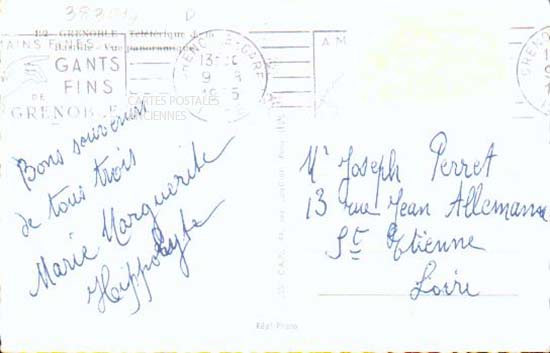 383
D
E2 - GRENOBLE - Téléférique de la
Bastille - Vue panoramique
MAINS FINES
GANTS
FINS
DE
GRENOBLE
GRENOBLE-GARE
13-
9-8
CARTES POSTALES
ANCIENNES
Bons souvenirs
de tous trois
Marie Marguerite
Hippolyte
Mr Joseph Perret
13 rue Jean Allemane
St Etienne
Loire
Réal-Photo